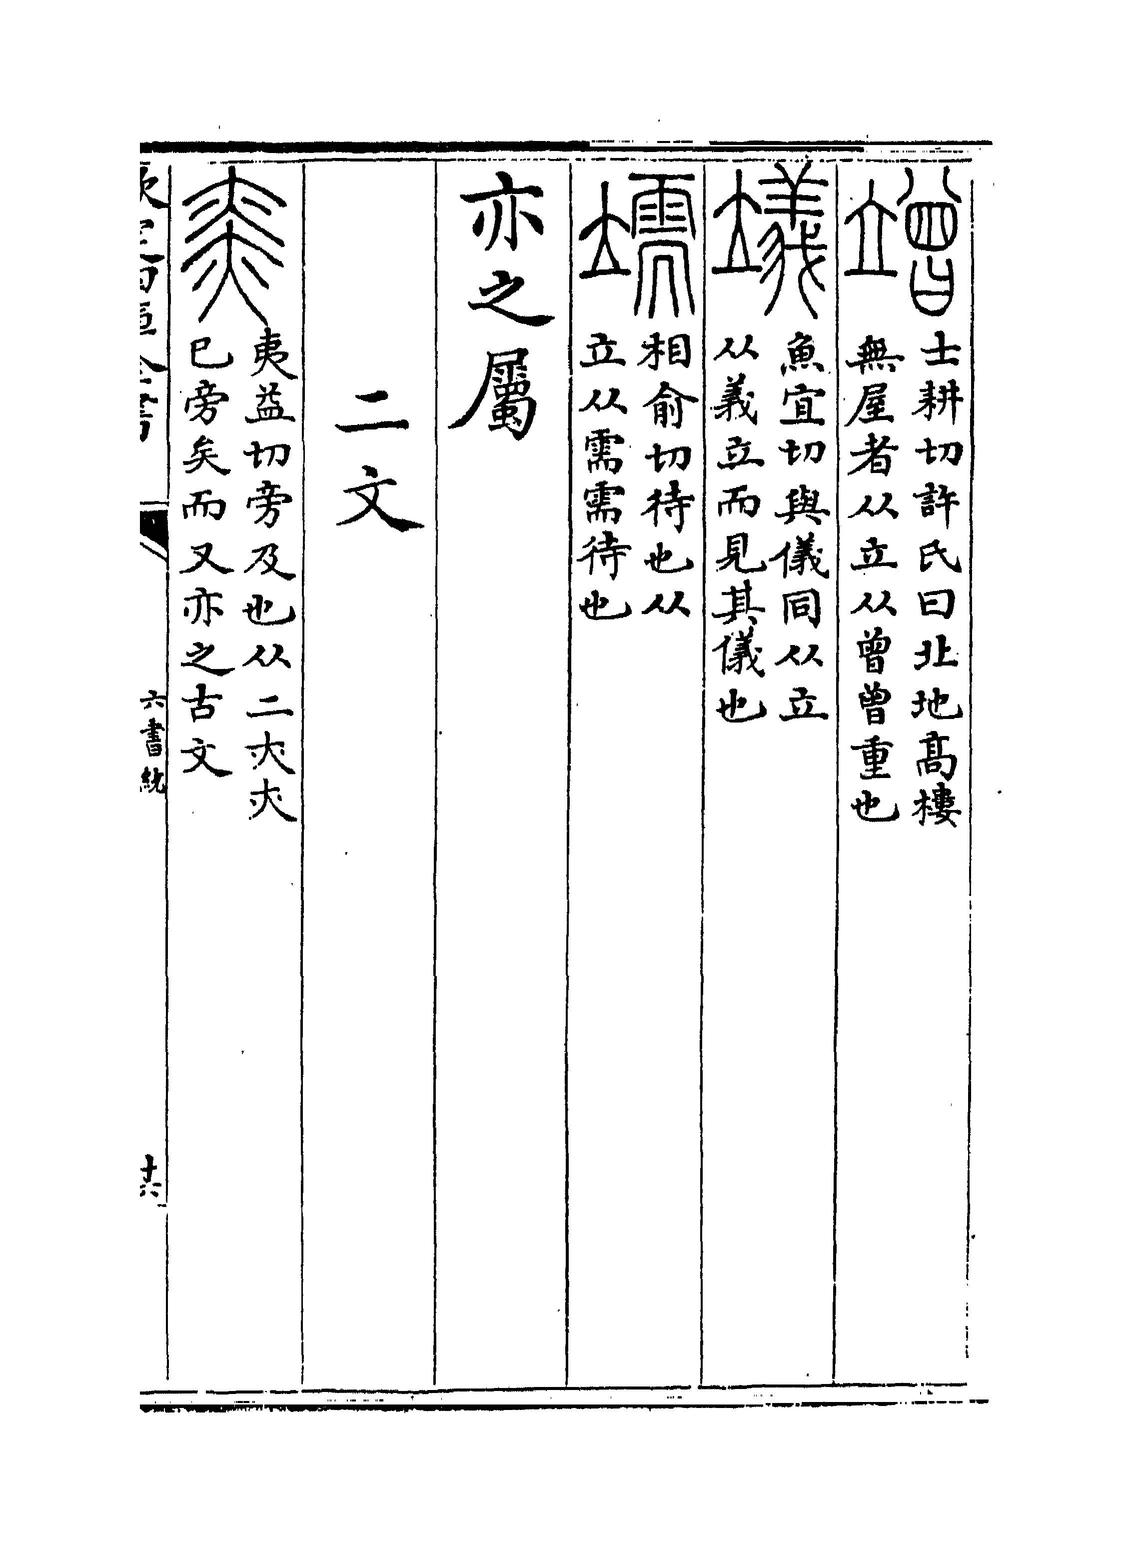 竲
士耕切許氏曰北地髙樓
無屋者从立从曾曾重也
䇃
魚宜切與儀同从立
从義立而見其儀也
䇕
相俞切待也从
立从需需待也
亦之屬
二文
夷益切旁及也从二亣亣
巳旁矣而又亦之古文
六書統